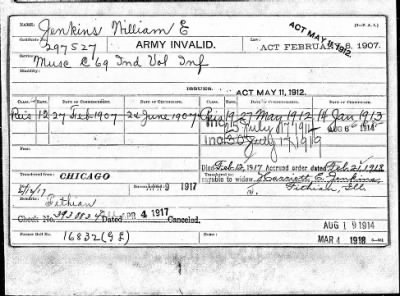 Jenkins William E
ACT MAY 11, 1912.
Certificate No.
297527
ARMY INVALID.
ACT FEBRUARY 6, 1907.
Service:
Musc C 69 Ind Vol Inf
ISSUES.
ACT MAY 11, 1912.
Class. RATE. DATE OF COMMENCEMENT. DATE OF CERTIFICATE. Class. RATE. DATE OF COMMENCEMENT. DATE OF CERTIFICATE.
Reis 12 27 Feb 1907 24 June 1907 Reis 19 27 May 1912 14 Jan 1913
Inc 25 July 17 1914 AUG 6 1914
Inc 30
Died Feb 12, 1917 Accrued order dated Feb 21, 1918
payable to widow, Harriett E. Jenkins,
Fithian, Ills
Transferred from CHICAGO
9 1917
Fithian
Check No. Dated APR 4 1917 Canceled.
AUG 19 1914
16832 (G L)
MAR 4 1918